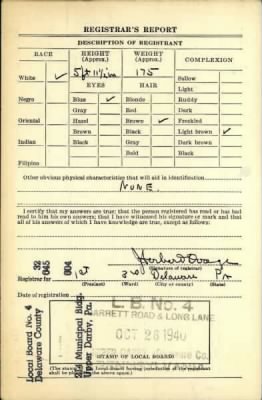 REGISTRAR'S REPORT
DESCRIPTION OF REGISTRANT
RACE HEIGHT (Approx.) WEIGHT (Approx.) COMPLEXION
White ✓ 5 ft 11 1/2 in 175 Sallow
EYES HAIR Light
Negro Blue ✓ Blonde Ruddy
Gray Red Dark
Oriental Hazel Brown ✓ Freckled
Brown Black Light brown ✓
Indian Black Gray Dark brown
Bald Black
Filipino
Other obvious physical characteristics that will aid in identification
NONE.
I certify that my answers are true; that the person registered has read or has had
read to him his own answers; that I have witnessed his signature or mark and that
all of his answers of which I have knowledge are true, except as follows:
32 604
045
Herbert
(Signature of registrar)
Registrar for 1st 3rd Delaware Pa
(Precinct) (Ward) (City or county) (State)
Date of registration
Local Board No. 4
Delaware County
Municipal Bldg.
Upper Darby, Pa.
L.B. No. 4
GARRETT ROAD & LONG LANE
OCT 26 1940
(STAMP OF LOCAL BOARD)
(The stamp of the Local Board having jurisdiction of the registrant
shall be placed in the above space.)